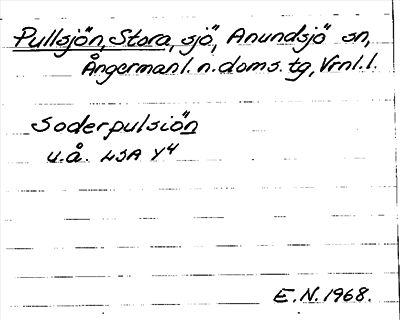 Pullsjön, Stora, sjö, Anundsjö sn,
Ångermanl. n. doms. tg, Vrnl. l.
Soderpulsiön
u.å. LSA Y4
E.N. 1968.